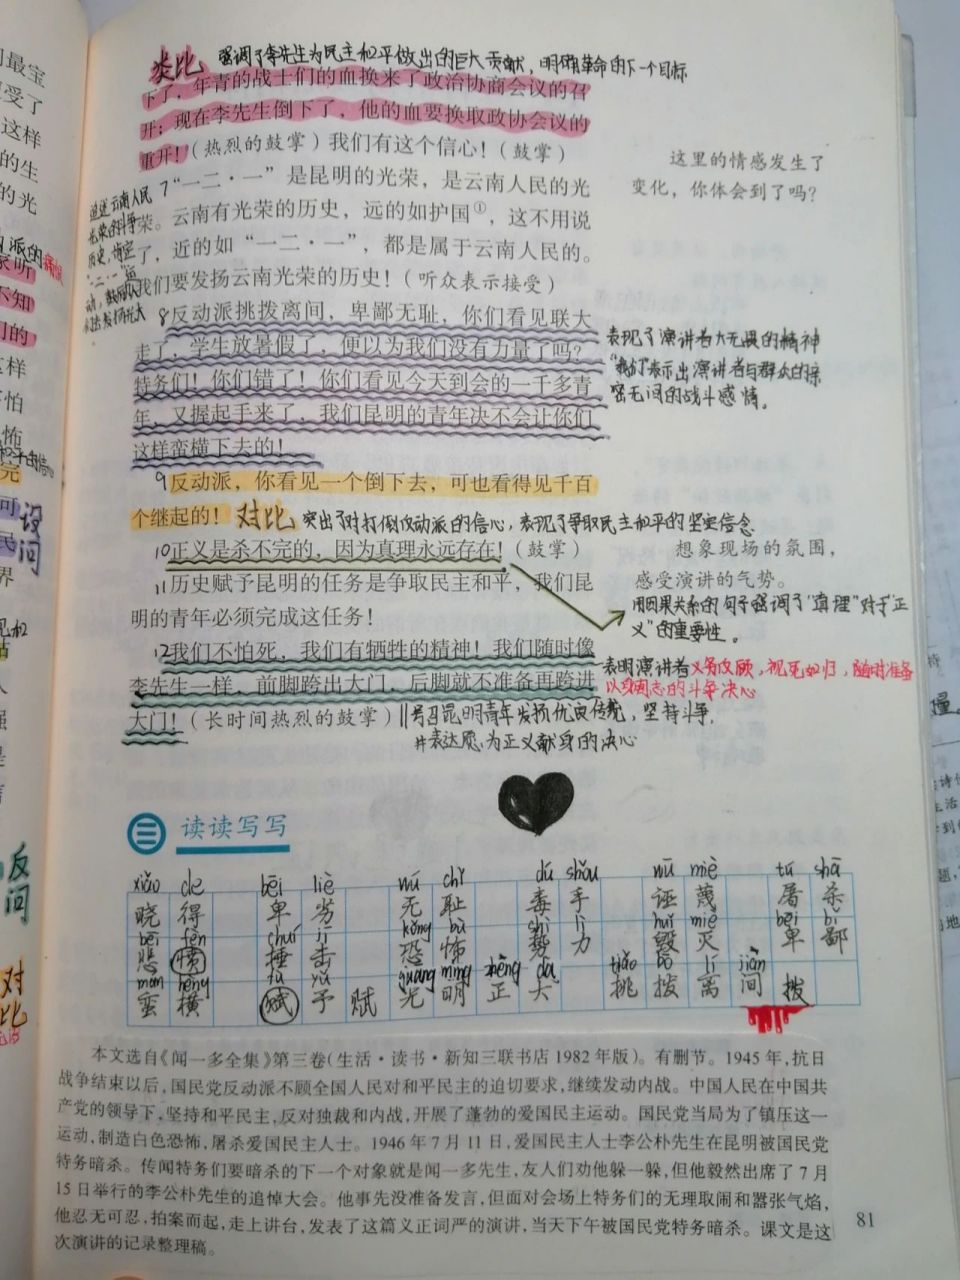 类比 强调了李先生为民主和平做出的巨大贡献，明确革命的下一个目标
下了，年青的战士们的血换来了政治协商会议的召
开；现在李先生倒下了，他的血要换取政协会议的
重开！（热烈的鼓掌）我们有这个信心！（鼓掌）
这里的情感发生了
变化，你体会到了吗？
7“一二·一”是昆明的光荣，是云南人民的光
荣。云南有光荣的历史，远的如护国①，这不用说
了，近的如“一二·一”，都是属于云南人民的。
我们要发扬云南光荣的历史！（听众表示接受）
追述云南人民
光荣的斗争
历史，肯定
“一二·一”运
8反动派挑拨离间，卑鄙无耻，你们看见联大
走了，学生放暑假了，便以为我们没有力量了吗？
特务们！你们错了！你们看见今天到会的一千多青
年，又握起手来了，我们昆明的青年决不会让你们
这样蛮横下去的！
表现了演讲者大无畏的精神
“我们”表示出演讲者与群众的亲
密无间的战斗感情。
9反动派，你看见一个倒下去，可也看得见千百
个继起的！ 对比 突出了对打倒反动派的信心，表现了争取民主和平的坚定信念
10正义是杀不完的，因为真理永远存在！（鼓掌）
想象现场的氛围，
感受演讲的气势。
11历史赋予昆明的任务是争取民主和平，我们昆
明的青年必须完成这任务！
用因果关系的句子强调了“真理”对于“正
义”的重要性。
12我们不怕死，我们有牺牲的精神！我们随时像
李先生一样，前脚跨出大门，后脚就不准备再跨进
大门！（长时间热烈的鼓掌）
表明演讲者义无反顾，视死如归，随时准备
以身殉志的斗争决心
号召昆明青年发扬优良传统，坚持斗争，
并表达愿为正义献身的决心
读读写写
xiǎo de bēi liè wú chǐ dú shǒu wū miè tú shā
晓得 卑劣 无耻 毒手 诬蔑 屠杀
bēi fèn chuí jī kǒng bù shì lì huǐ miè bēi bǐ
悲愤 捶击 恐怖 势力 毁灭 卑鄙
mán hèng fù yǔ guāng míng zhèng dà tiǎo bō lí jiàn
蛮横 赋予 赋 光明 正大 挑拨离间 拨
本文选自《闻一多全集》第三卷（生活·读书·新知三联书店1982年版）。有删节。1945年，抗日
战争结束以后，国民党反动派不顾全国人民对和平民主的迫切要求，继续发动内战。中国人民在中国共
产党的领导下，坚持和平民主，反对独裁和内战，开展了蓬勃的爱国民主运动。国民党当局为了镇压这一
运动，制造白色恐怖，屠杀爱国民主人士。1946年7月11日，爱国民主人士李公朴先生在昆明被国民党
特务暗杀。传闻特务们要暗杀的下一个对象就是闻一多先生，友人们劝他躲一躲，但他毅然出席了7月
15日举行的李公朴先生的追悼大会。他事先没准备发言，但面对会场上特务们的无理取闹和嚣张气焰，
他忍无可忍，拍案而起，走上讲台，发表了这篇义正词严的演讲，当天下午被国民党特务暗杀。课文是这
次演讲的记录整理稿。
81
设问
反问
对比